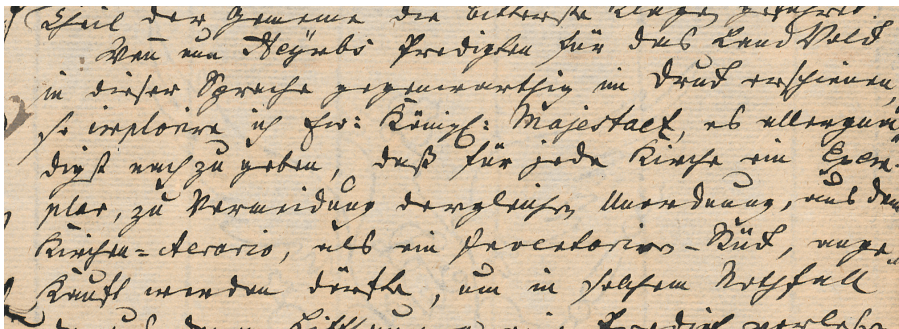 Theil der Gemeine die bitterste Klagen geführet
Weñ nun Heÿrbs Predigten für das Land Volck
in dieser Sprache gegenwärthig im Druck erschienen,
so imploire ich Ew: Königl: Majestaet, es allergnä-
digst nach zu geben, daß für jede Kirche ein Exem-
plar, zu Vermeidung dergleichen Unordnung, aus dem
Kirchen-Aerario, als ein Inventarien-Stück, ange-
kauft werden dörfte, um in solchem Nothfall
Predigt